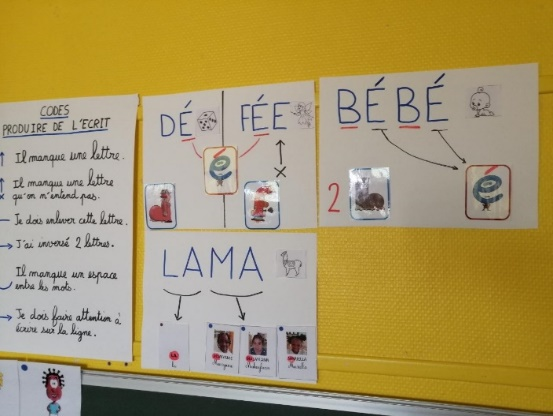 CODES
PRODUIRE DE L'ECRIT
Il manque une lettre.
Il manque une lettre
qu'on n'entend pas.
Je dois enlever cette lettre.
J'ai inversé 2 lettres.
Il manque un espace
entre les mots.
Je dois faire attention à
écrire sur la ligne.
DÉ
FÉE
é
x
BÉBÉ
2
é
LAMA
LA